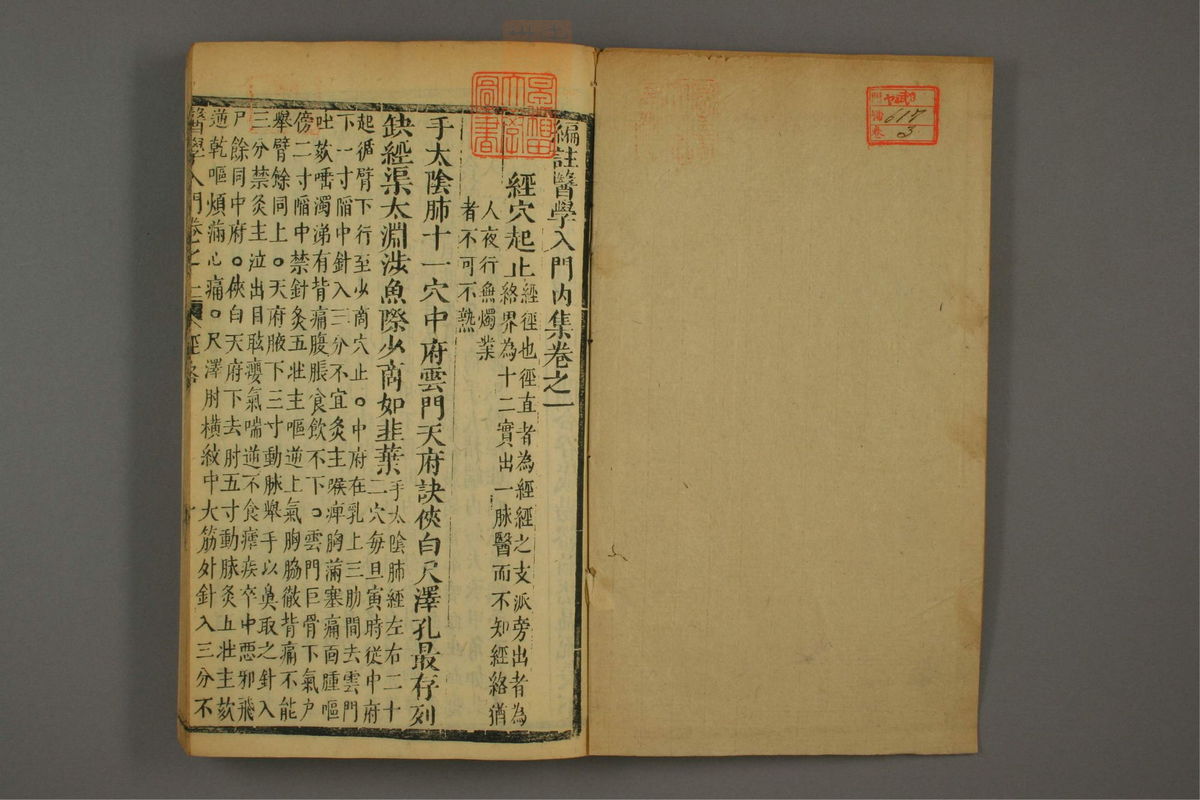 617
3
編註醫學入門內集卷之一
經穴起止
經徑也徑直者為經經之支派旁出者為
絡界為十二實出一脉醫而不知經絡猶
人夜行無燭業
者不可不熟
手太陰肺十一穴中府雲門天府訣俠白尺澤孔最存列
缺經渠太淵涉魚際少商如韭葉
手太陰肺經左右二十
二穴每旦寅時從中府
起循臂下行至少商穴止。中府在乳上三肋間去雲門
下一寸陷中針入三分不宜灸主喉痺胸滿塞痛面腫嘔
吐咳唾濁涕有背痛腹脹食飲不下。雲門巨骨下氣户
傍二寸陷中禁針灸五壯主嘔逆上氣胸脇徹背痛不能
舉臂餘同上。天府腋下三寸動脉舉手以鼻取之針入
三分禁灸主泣出目眩癭氣喘逆不食瘧疾卒中惡邪飛
尸餘同中府。俠白天府下去肘五寸動脉灸五壯主咳
逆乾嘔煩滿心痛。尺澤肘横紋中大筋外針入三分不
醫學入門卷之上 經絡